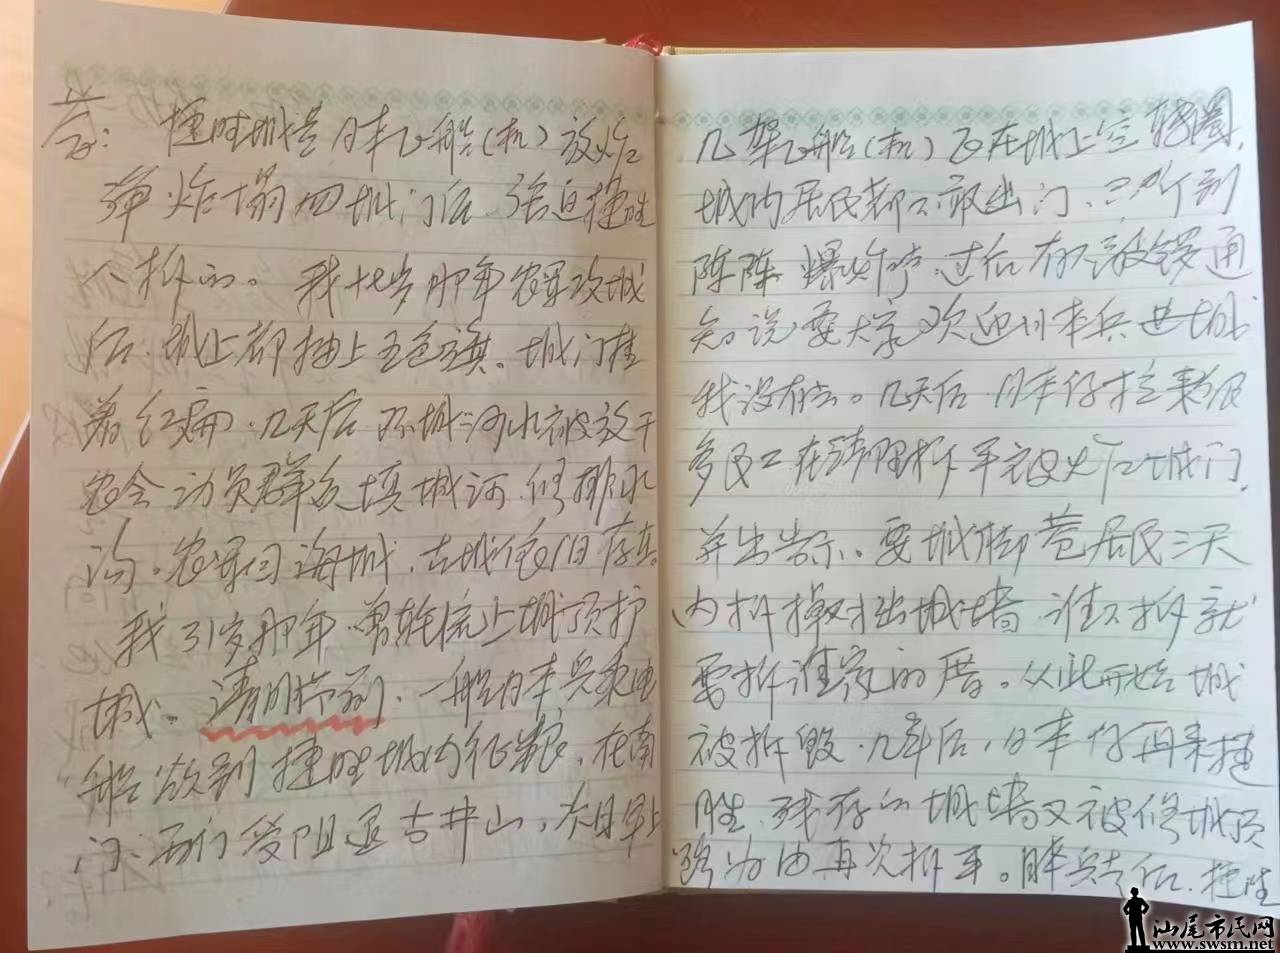 答：捷胜城是日本飞船（机）放炸
弹炸塌四城门后、强迫捷胜
人拆的。我十七岁那年农军攻城
后、城上都插上五色旗。城门挂
着红布、几天后环城河水被放干
农会动员群众填城河、修排水
沟。农军回海城、古城依旧存在。
我31岁那年、曾轮流上城顶护
城。清明节前、一船日本兵乘电
船欲到捷胜城内征粮、在南
门、西门受阻退古井山、次日早上
几架飞船（机）正在城上空转圈、
城内居民都不敢出门、只听到
阵阵爆炸声、过后有人敲锣通
知说要大家欢迎日本兵进城
我没有去。几天后、日本仔拉来很
多民工在清理拆平被炸城门、
并出告示。要城脚巷居民三天
内拆掉对出城墙、谁不拆就
要拆谁家的厝。从此开始城
被拆毁、几年后、日本仔再来捷
胜、残存的城墙又被修城顶
路为由再次拆平。日本兵去后、捷胜
汕尾市民网
www.swsm.net